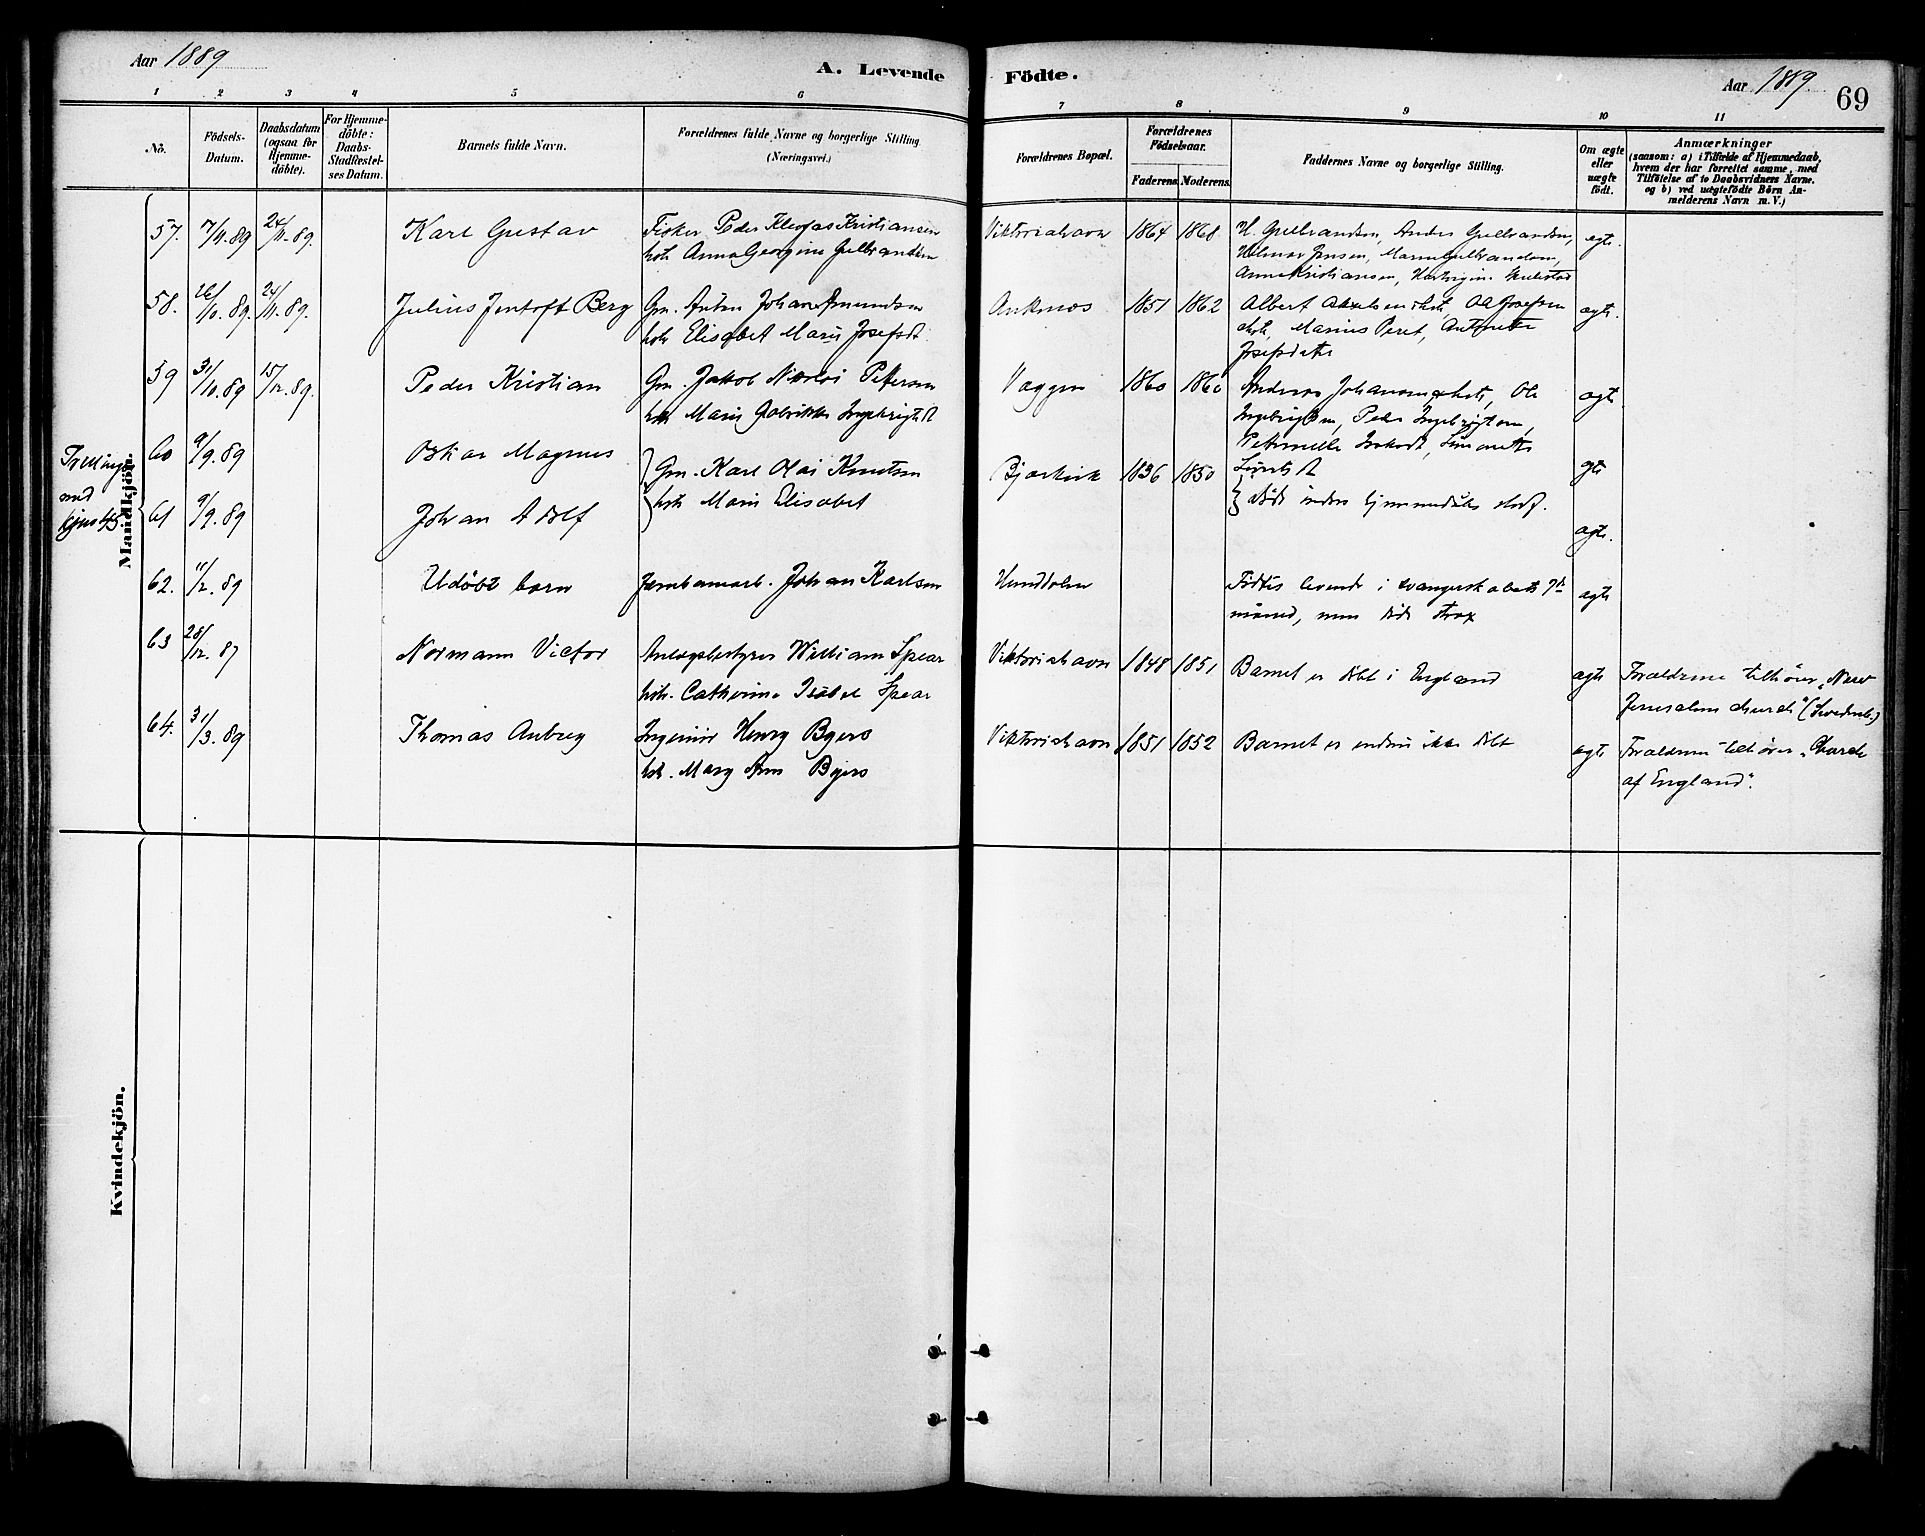 Aar 1889
A. Levende
Födte.
Aar 1889.
69
1 2 3 4 5 6 7 8 9 10 11
No.
Födsels-
Datum.
Daabsdatum
(ogsaa for
Hjemme-
döbte).
For Hjemme-
döbte:
Daabs-
Stadfestel-
ses Datum.
Barnets fulde Navn.
Forældrenes fulde Navne og borgerlige Stilling
(Næringsvei.)
Forældrenes Bopæl.
Forældrenes
Födselsaar.
Faderens. Moderens.
Faddernes Navne og borgerlige Stilling.
Om ægte
eller
uægte
födt.
Anmærkninger
(saasom: a) i Tilfælde af Hjemmedaab,
hvem der har forrettet samme, med
Tilföielse af to Daabsvidners Navne.
og b) ved uægtefödte Börn An-
melderens Navn m. V.)
Mandkjön.
57. 7/11.89 24/11.89. Karl Gustav
Fisker Peder Kleofas Kristiansen
hstr Anna Georgine Gulbrandsen
Viktoriahavn 1864 1868
H. Gulbrandsen, Anders Gulbrandsen,
Hilmar Jensen, Marie Gulbrandsen,
Anna Kristiansen,
ægte.
58. 26/10.89. 24/11.89. Julius Jentoft Berg
Gm. Anton Johan Amundsen
hstr Elisabet Marie Josefsdt.
Ankenes 1851 1862
Albert Axelsen & hst, Ole Josefsen
& hst, Marius Peret, Antonette
Josefsdatter
ægte.
59 31/10.89 15/12.89. Peder Kristian
Gm. Jakob Nikolai Petersen
hstr Maria Ingebrigtsdt
Vaggen 1860 1860
Andreas Johansen & hst, Ole
Ingebrigtsen, Peder Ingebrigtsen,
Petrunelle Isaksdt, Simonette
Sivertsdt
ægte
Tvillinger
med
60 9/9.89 Oskar Magnus
61 9/9.89 Johan Adolf
Gm. Karl Olai Knutsen
hstr Maria Elisabet
Bjerkvik 1836 1850
Døde uden hjemmedåb
ægte
ægte.
62. 11/2.89 Udøbt barn
Jernbanearb. Johan Karlsen
Hunddalen
Fødtes levende i svangerskabets 7de
måned, men døde strax
ægte
63 28/12.87 Normann Victor
Anlægsbestyrer William Spear
hstr. Catherine Isabel Spear
Viktoriahavn 1848 1851
Barnet er døbt i England
ægte
Forældrene tilhører "New
Jerusalem church" (Svedenb.)
64. 31/3.89 Thomas Aubrey
Ingeniør Henry Byers
hstr. Mary Ann Byers
Viktoriahavn 1851 1852
Barnet er endnu ikke døbt
ægte
Forældrene tilhører "Church
of England".
Kvindekjön.